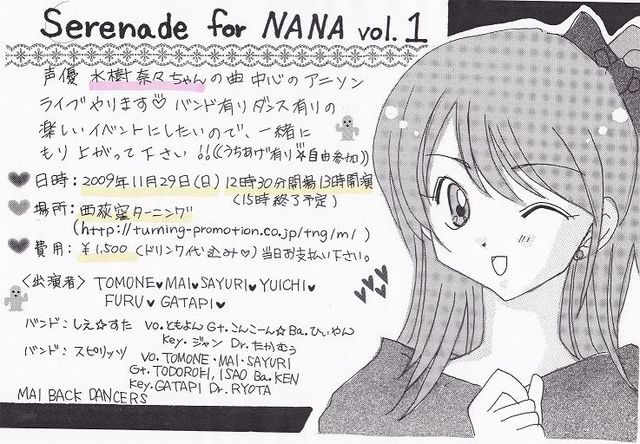 Serenade for NANA vol.1
声優 水樹奈々ちゃんの曲中心のアニソン
ライブやります♡ バンド有りダンス有りの
楽しいイベントにしたいので、一緒に
もり上がって下さい!!((うちあげ有り☆自由参加))
♥日時:2009年11月29日(日) 12時30分開場13時開演
(15時終了予定)
♥場所:西荻窪ターニング
(http://turning-promotion.co.jp/tng/m/)
♥費用:¥1,500(ドリンク代込み♡)当日お支払い下さい。
〈出演者〉 TOMONE♥MAI♥SAYURI♥YUICHI♥
FURU♥GATAPI♥
バンド:しえ☆すた Vo.ともよん Gt.こんこーん☆Ba.ひぃやん
Key.ジャン Dr.たかむう
バンド:スピリッツ Vo.TOMONE・MAI・SAYURI
Gt.TODOROHI, ISAO Ba.KEN
Key.GATAPI Dr.RYOTA
MAI BACK DANCERS